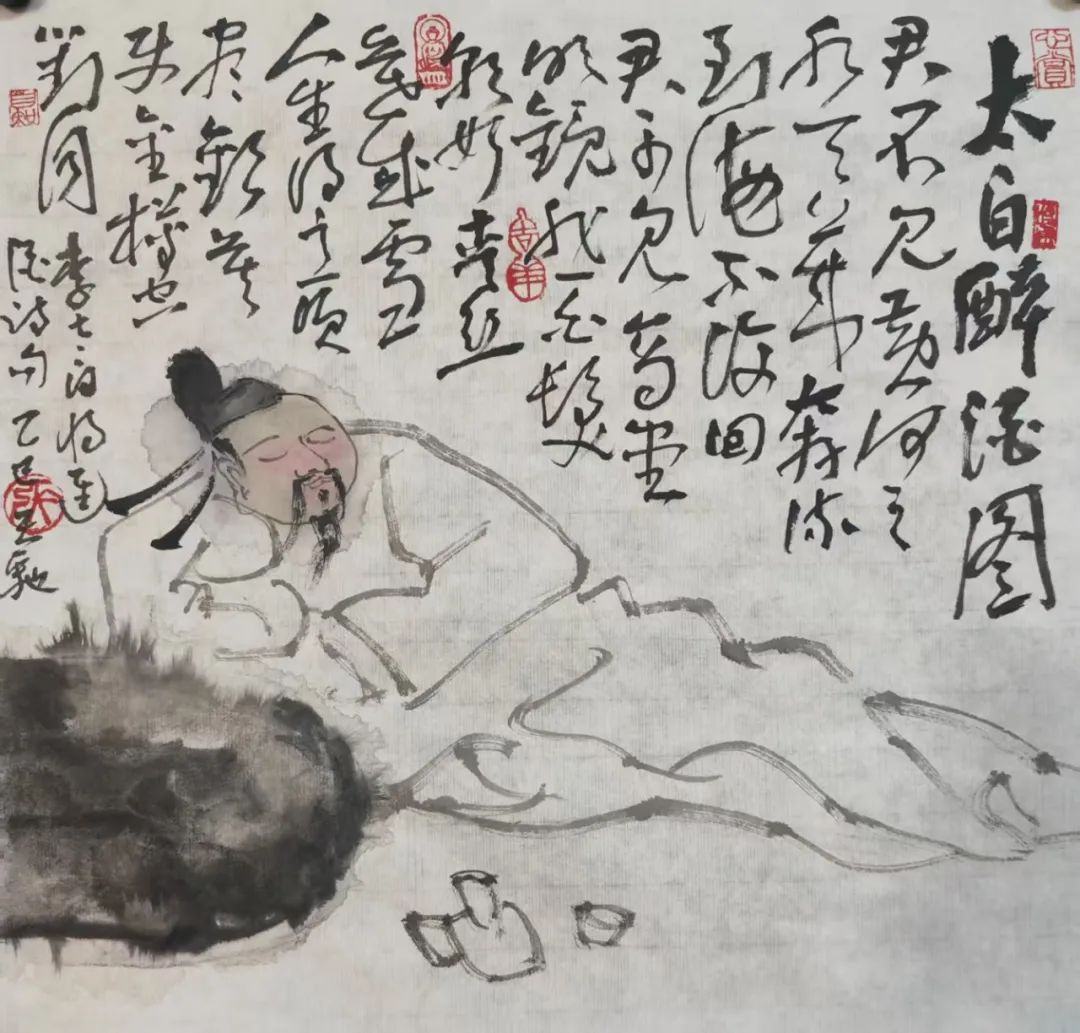 太白醉酒图
君不见黄河之
水天上来奔流
到海不復回
君不见高堂
明镜悲白髮
朝如青丝
暮成雪
人生得意须
尽欢莫
使金樽空
對月
李太白将进
酒诗句乙巳